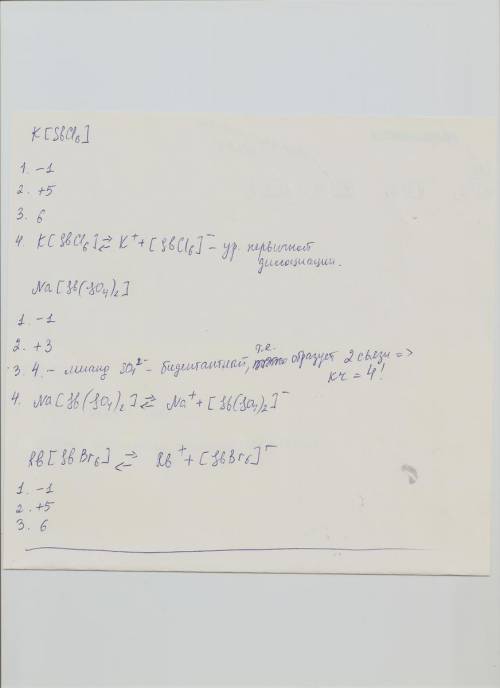 K[SbCl6]
1. -1
2. +5
3. 6
4. K[SbCl6] ⇄ K⁺ + [SbCl6]⁻ - ур. первичной
диссоциации.
Na[Sb(SO4)2]
1. -1
2. +3
3. 4. - лиганд SO4²⁻ - бидентантной, т.е. образует 2 связи =>
КЧ = 4!
4. Na[Sb(SO4)2] ⇄ Na⁺ + [Sb(SO4)2]⁻
Rb[SbBr6] ⇄ Rb⁺ + [SbBr6]⁻
1. -1
2. +5
3. 6